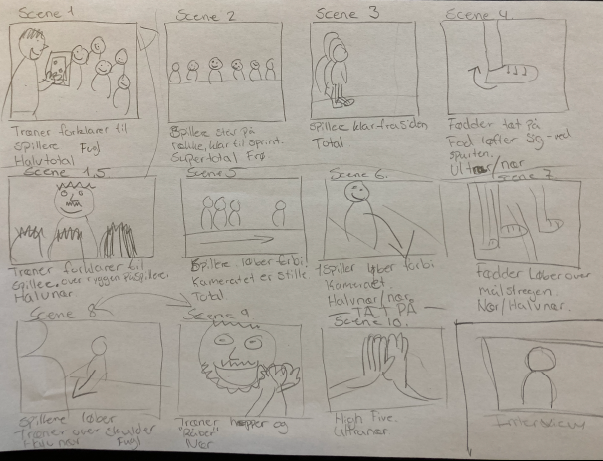 Scene 1
Træner forklarer til
spillere Fugl
Halvtotal
Scene 2
Spillere står på
række, klar til sprint.
Supertotal Frø
Scene 3
spillee klar fra siden
Total
Scene 4.
Fødder tæt på
Fod løfter sig ved
spurten.
Ultranær/nær
Scene 1,5
Træner forklarer til
spillee, over ryggen på spillee.
Halvnær
Scene 5
Spillere løber forbi
Kameraet er stille
Total
Scene 6.
1 spiller løber forbi
kameraet.
Halvnær/nær
TÆT PÅ
Scene 7
Fødder løber over
målstregen.
Nær/Halvnær.
Scene 8
Spillere løber
Træner over skulder
Halvnær Fugl
Scene 9
Træner hepper og
Nær
Scene 10.
High Five.
Ultranær
Interview